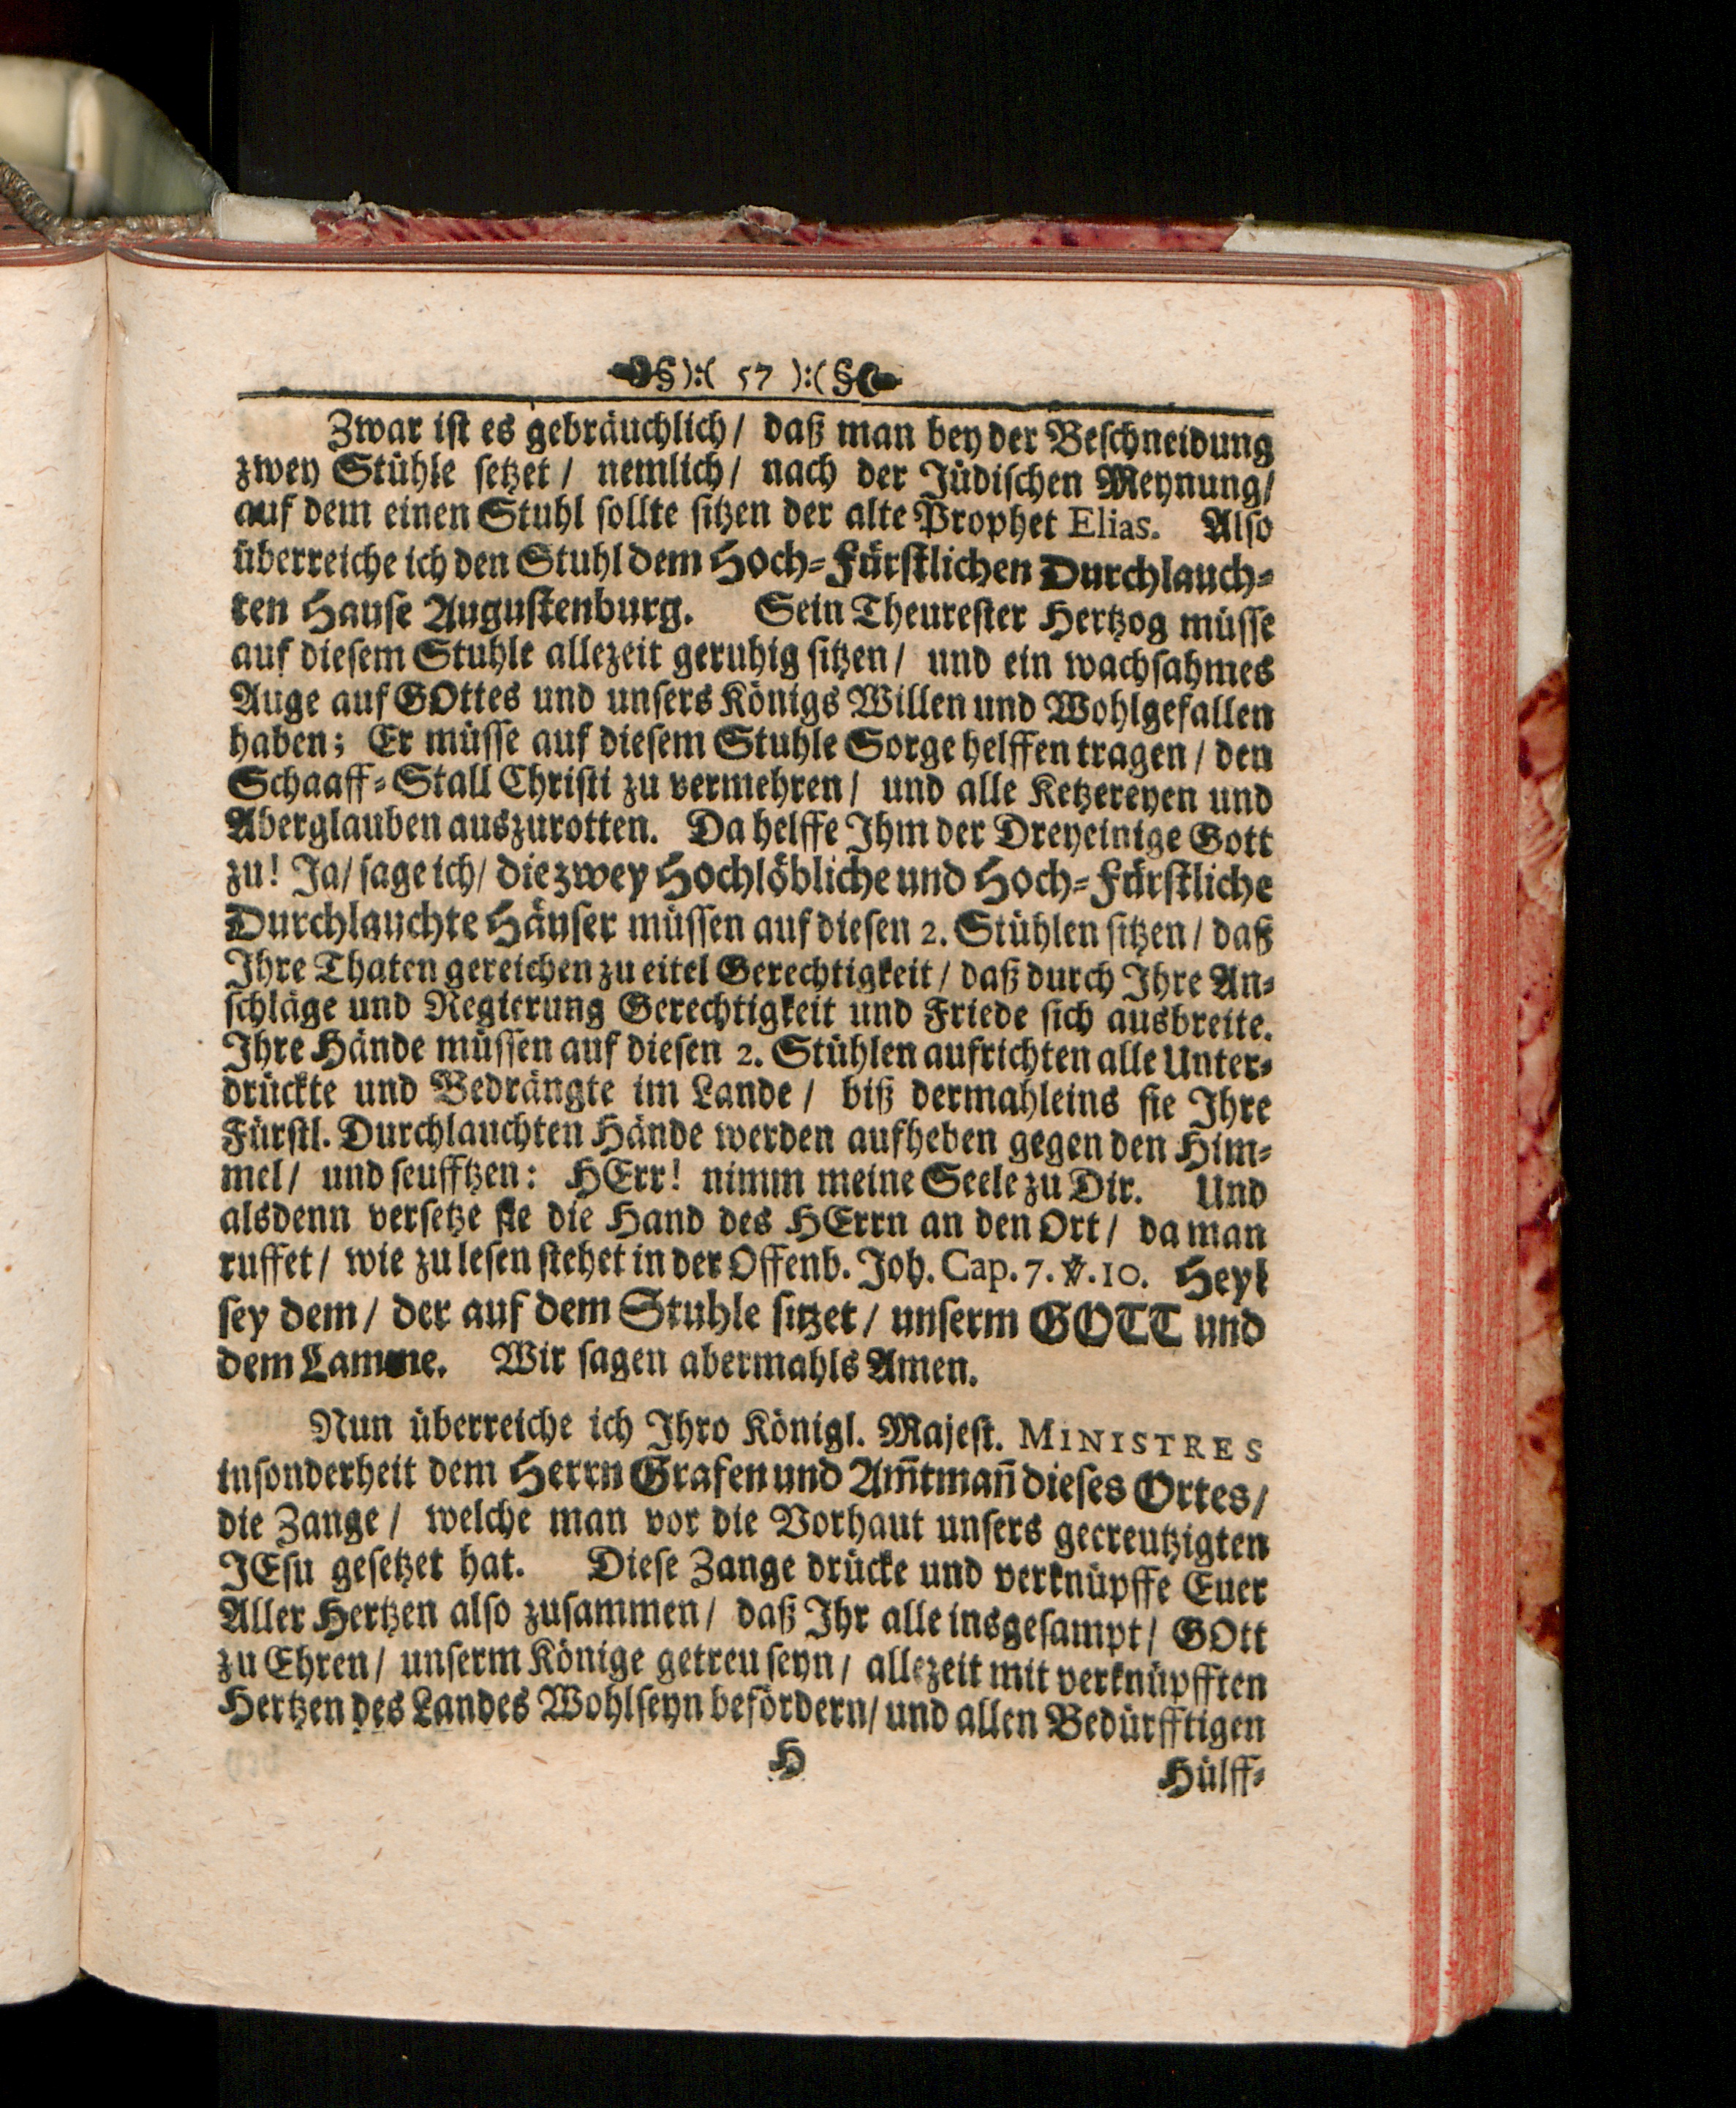 §):( 57 ):(§
Zwar ist es gebräuchlich/ daß man bey der Beschneidung
zwey Stühle setzet/ nemlich/ nach der Jüdischen Meynung/
auf dem einen Stuhl sollte sitzen der alte Prophet Elias. Also
überreiche ich den Stuhl dem Hoch-Fürstlichen Durchlauch-
ten Hause Augustenburg. Sein Theurester Hertzog müsse
auf diesem Stuhle allezeit geruhig sitzen/ und ein wachsahmes
Auge auf GOttes und unsers Königs Willen und Wohlgefallen
haben; Er müsse auf diesem Stuhle Sorge helffen tragen/ den
Schaaff-Stall Christi zu vermehren/ und alle Ketzereyen und
Aberglauben auszurotten. Da helffe Ihm der Dreyeinige Gott
zu! Ja/ sage ich/ die zwey Hochlöbliche und Hoch-Fürstliche
Durchlauchte Häuser müssen auf diesen 2. Stühlen sitzen/ daß
Ihre Thaten gereichen zu eitel Gerechtigkeit/ daß durch Ihre An-
schläge und Regierung Gerechtigkeit und Friede sich ausbreite.
Ihre Hände müssen auf diesen 2. Stühlen aufrichten alle Unter-
drückte und Bedrängte im Lande/ biß dermahleins sie Ihre
Fürstl. Durchlauchten Hände werden aufheben gegen den Him-
mel/ und seufftzen: HErr! nimm meine Seele zu Dir. Und
alsdenn versetze sie die Hand des HErrn an den Ort/ da man
ruffet/ wie zu lesen stehet in der Offenb. Joh. Cap. 7. ℣. 10. Heyl
sey dem/ der auf dem Stuhle sitzet/ unserm GOTT und
dem Lamme. Wir sagen abermahls Amen.
Nun überreiche ich Ihro Königl. Majest. MINISTRES
insonderheit dem Herrn Grafen und Am̃tmañ dieses Ortes/
die Zange/ welche man vor die Vorhaut unsers gecreutzigten
JEsu gesetzet hat. Diese Zange drücke und verknüpffe Euer
Aller Hertzen also zusammen/ daß Ihr alle insgesampt/ GOtt
zu Ehren/ unserm Könige getreu seyn/ allezeit mit verknüpfften
Hertzen des Landes Wohlseyn befördern/ und allen Bedürfftigen
H
Hülff-